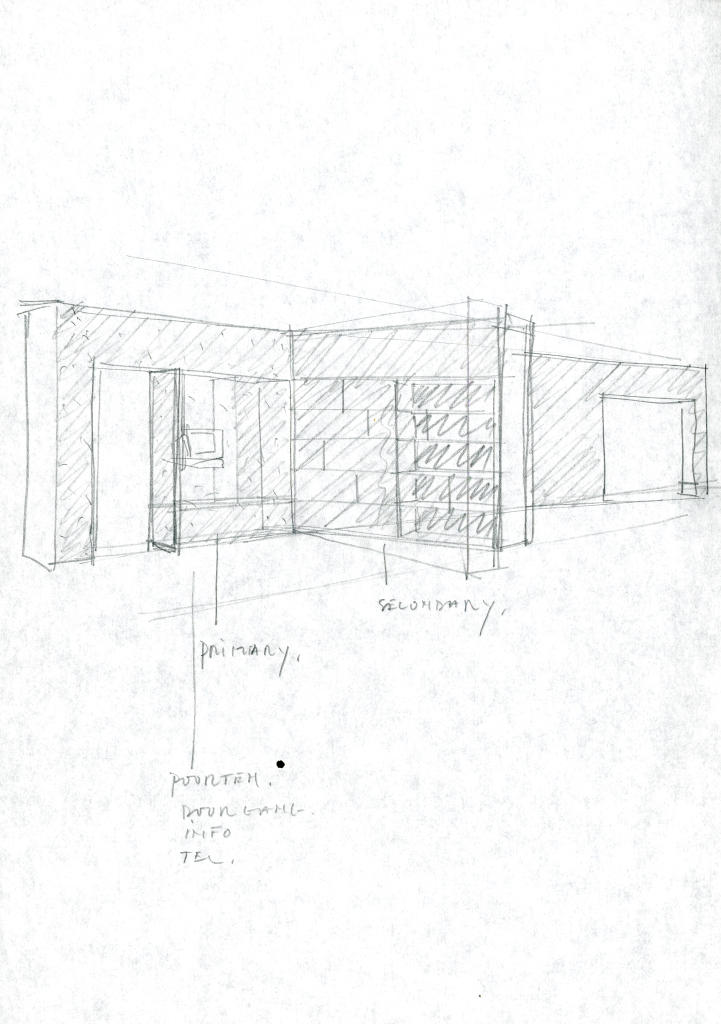 SECONDARY.
PRIMARY.
POORTEN.
DOORGANG.
INFO
TEL.